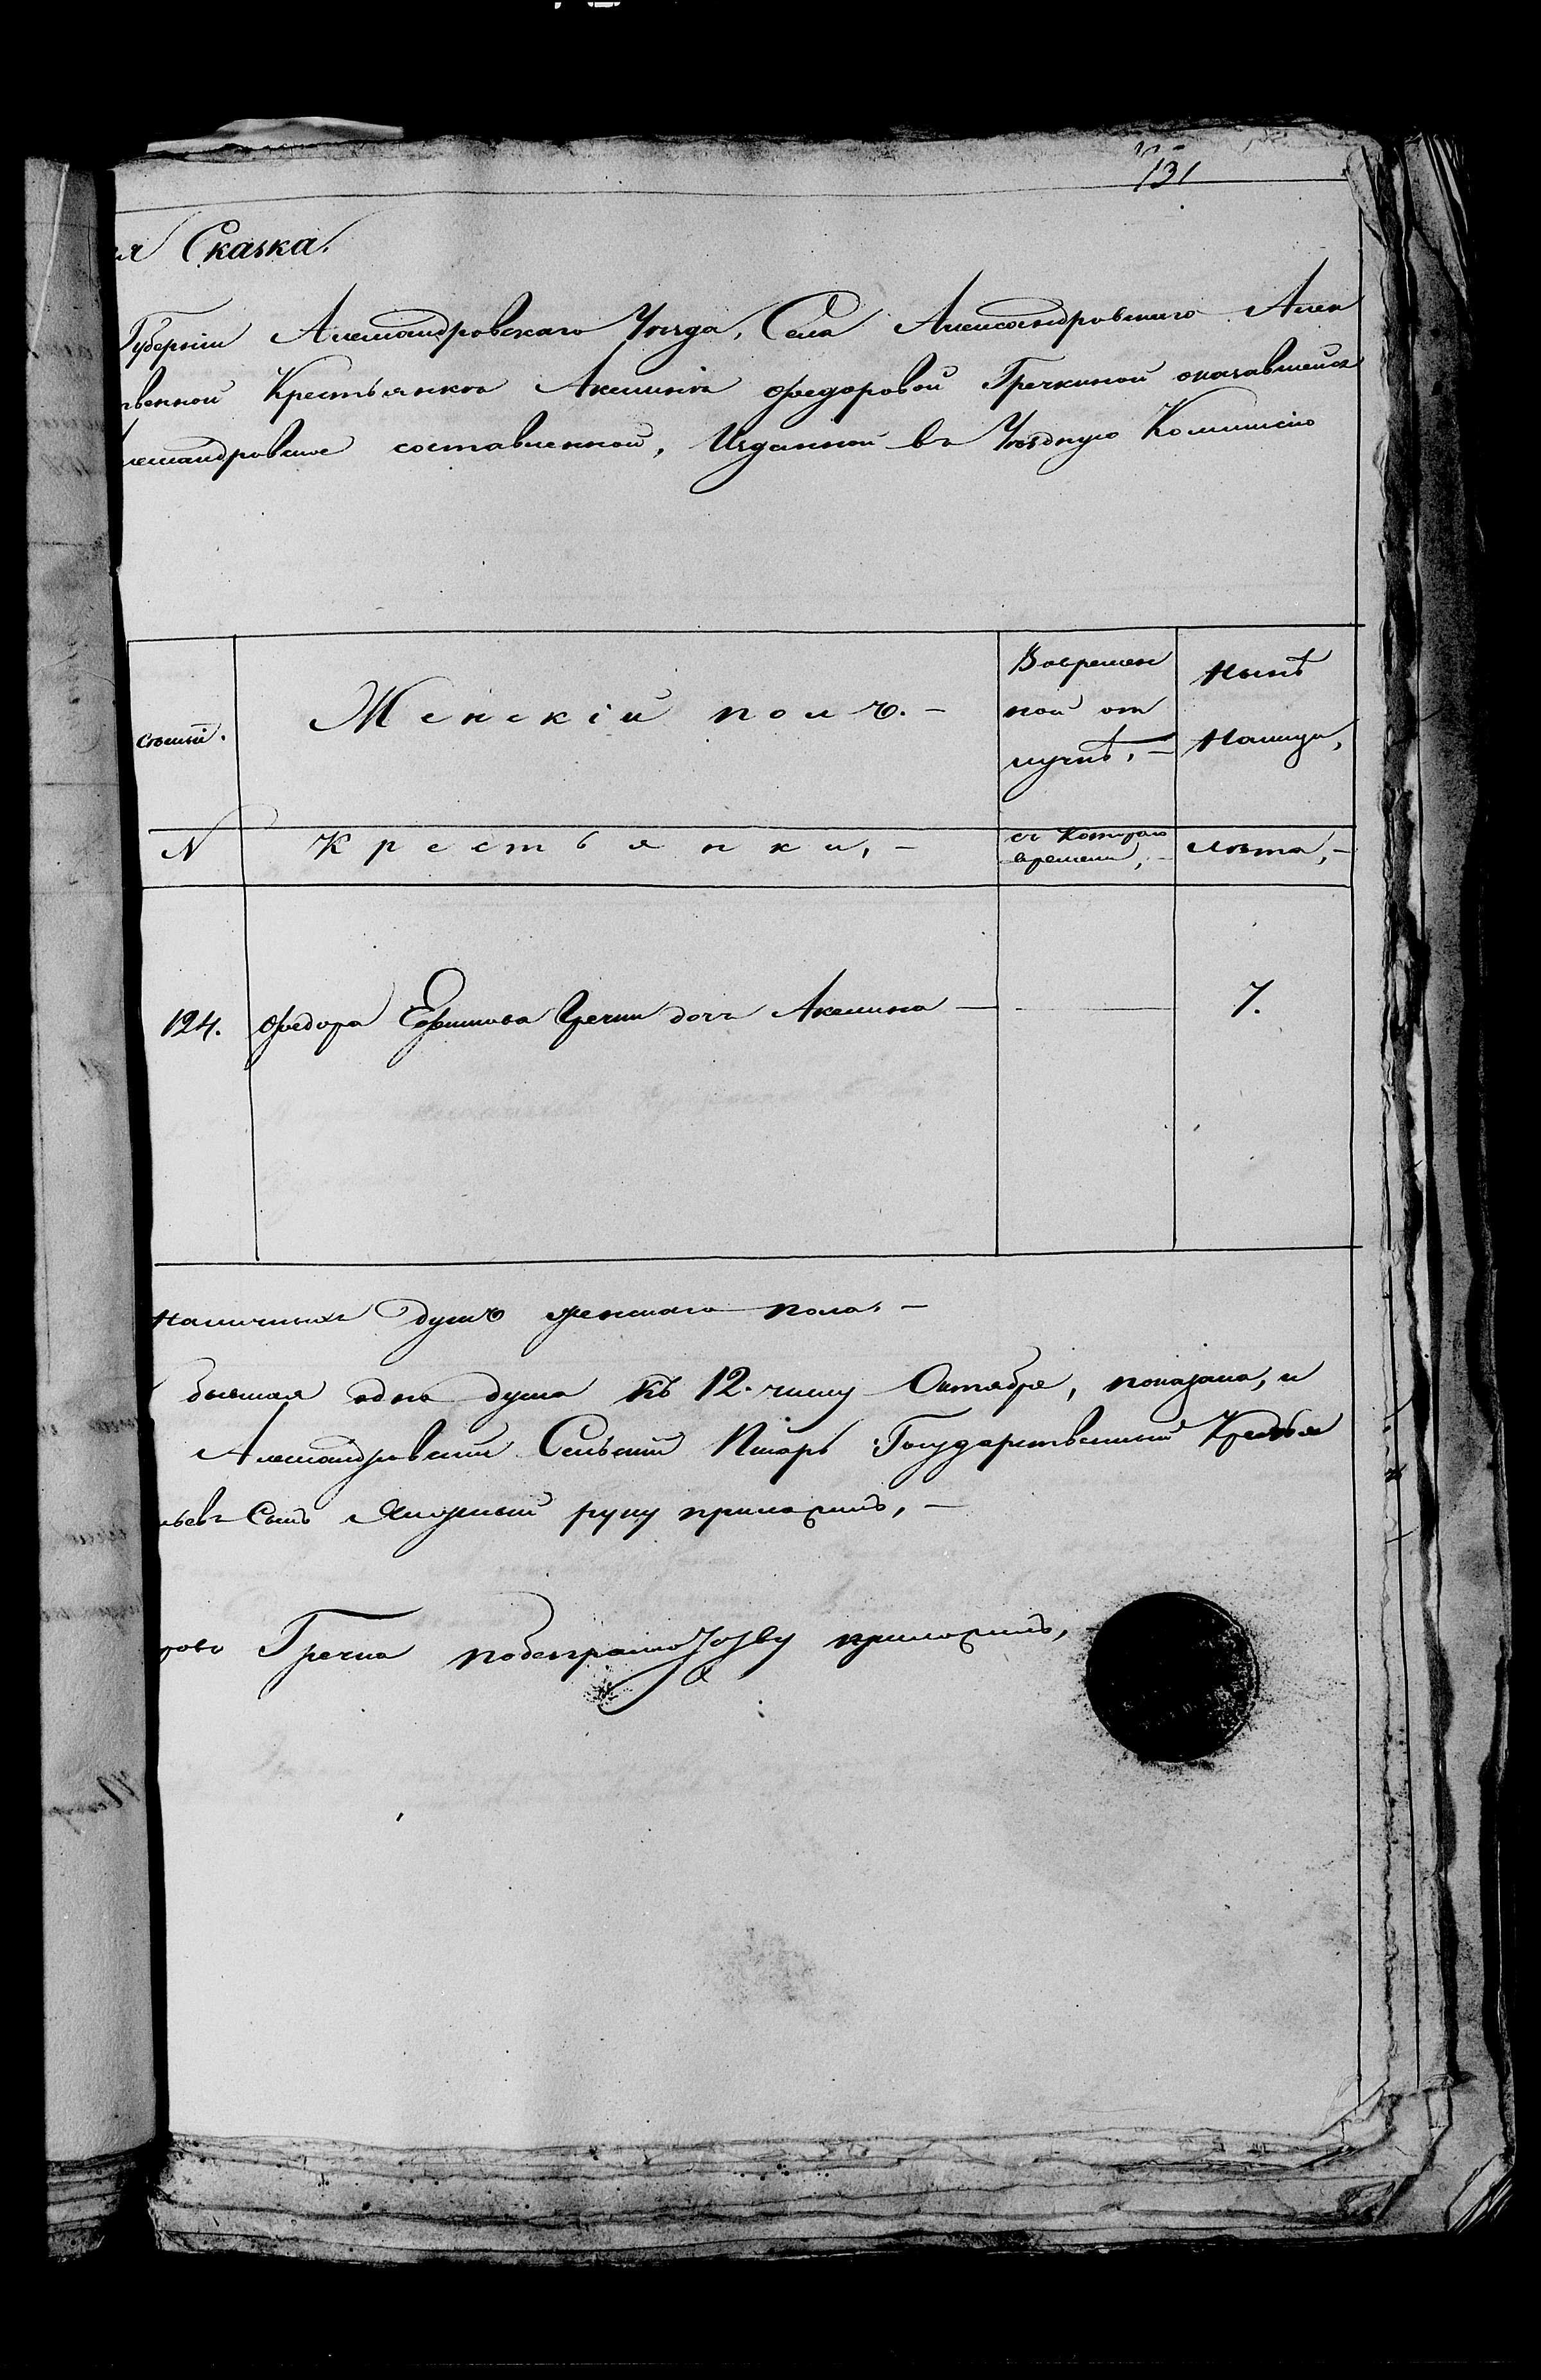 131
ая Сказка.
Губерніи Александровскаго Уѣзда, Села Александровскаго Алек
твенной Крестьянкѣ Акелинѣ Федоровой Гречкиной оказавшейся
лександровское составленной, Изданной въ Уѣздную Комиссію
Женскій полъ. -
Вовремен
ной от
лучкѣ, -
Нынѣ
Налицо,
N
Крестьянки, -
съ Котораго
времени, -
Лѣта, -
124.
Федора Ефимова Гречки дочь Акелина —
7.
Наличныхъ душъ женскаго пола. -
бывшая одна душа къ 12. числу Октября, показана, и
Александровскій Сельскій Писарь Государственный Крестья
сынъ руку приложилъ, -
Гречка приложилъ,